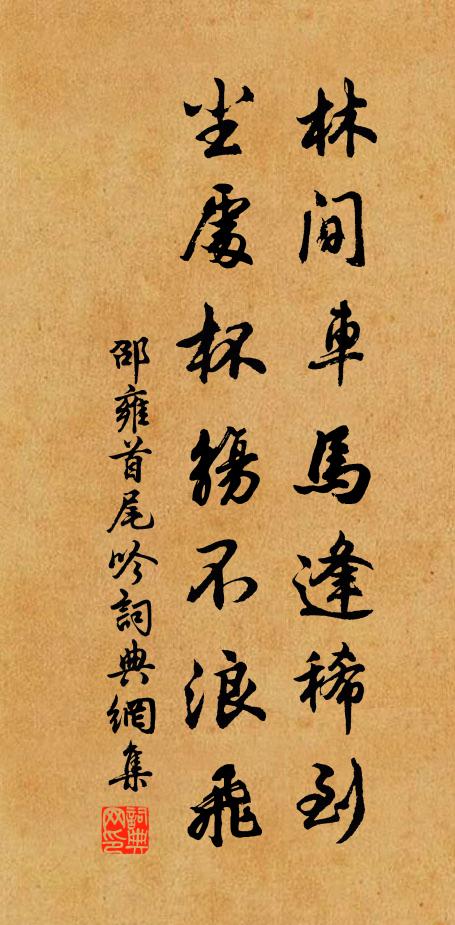 林間車馬逢稀到
坐處杯觴不浪飛
邵雍首尾吟詞典網集
詞典网印